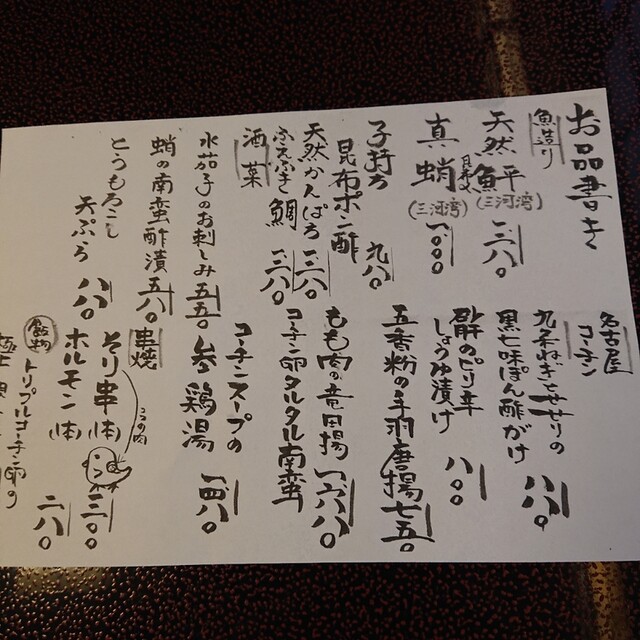 お品書き
魚造り
天然鮃 一三八〇
(三河湾)
真蛸 一〇〇〇
(三河湾)
子持ち
昆布ポン酢 九八〇
天然かんぱち 一三八〇
ふえふき鯛 一三八〇
酒菜
水茄子のお刺しみ 五五〇
蛸の南蛮酢漬 五八〇
とうもろこし
天ぷら 八八〇
名古屋
コーチン
九条ねぎとせせりの
黒七味ぽん酢がけ 八八〇
肝のピリ辛
しょうゆ漬け 八〇〇
五香粉の手羽唐揚 七五〇
もも肉の竜田揚
コーチン卵タルタル南蛮 一六八〇
コーチンスープの
参鶏湯 一四八〇
串焼
そり串(一本) 三〇〇
ココの肉
ホルモン(一本) 二八〇
飯物
トリプルコーチン卵の